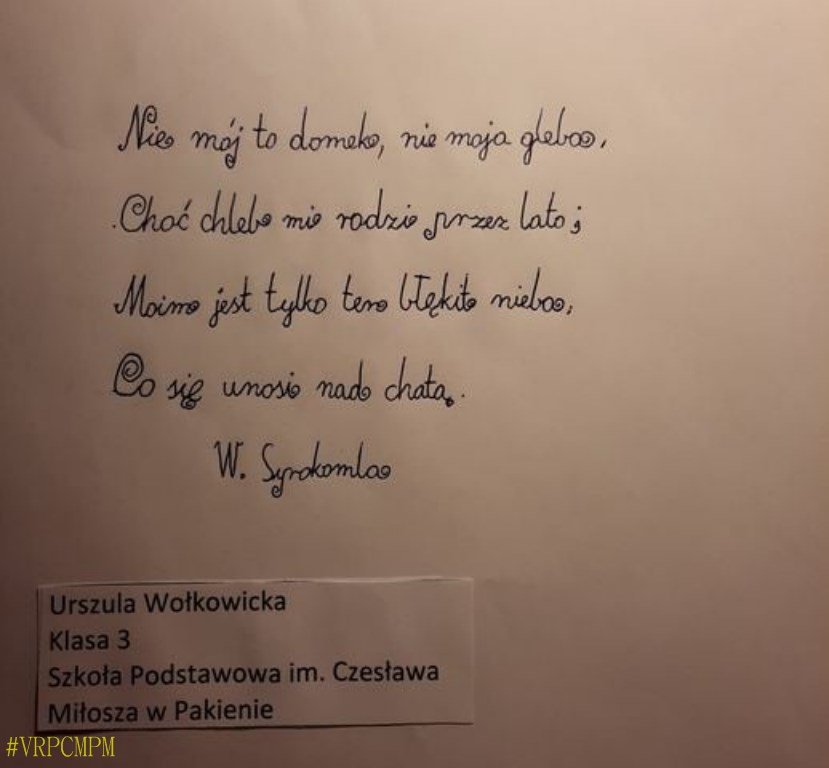 Nie mój to domek, nie moja gleba,
Choć chleb mi rodzi przez lato;
Moim jest tylko ten błękit nieba,
Co się unosi nad chatą.
W. Syrokomla
Urszula Wołkowicka
Klasa 3
Szkoła Podstawowa im. Czesława
Miłosza w Pakienie
#VRPCMPM